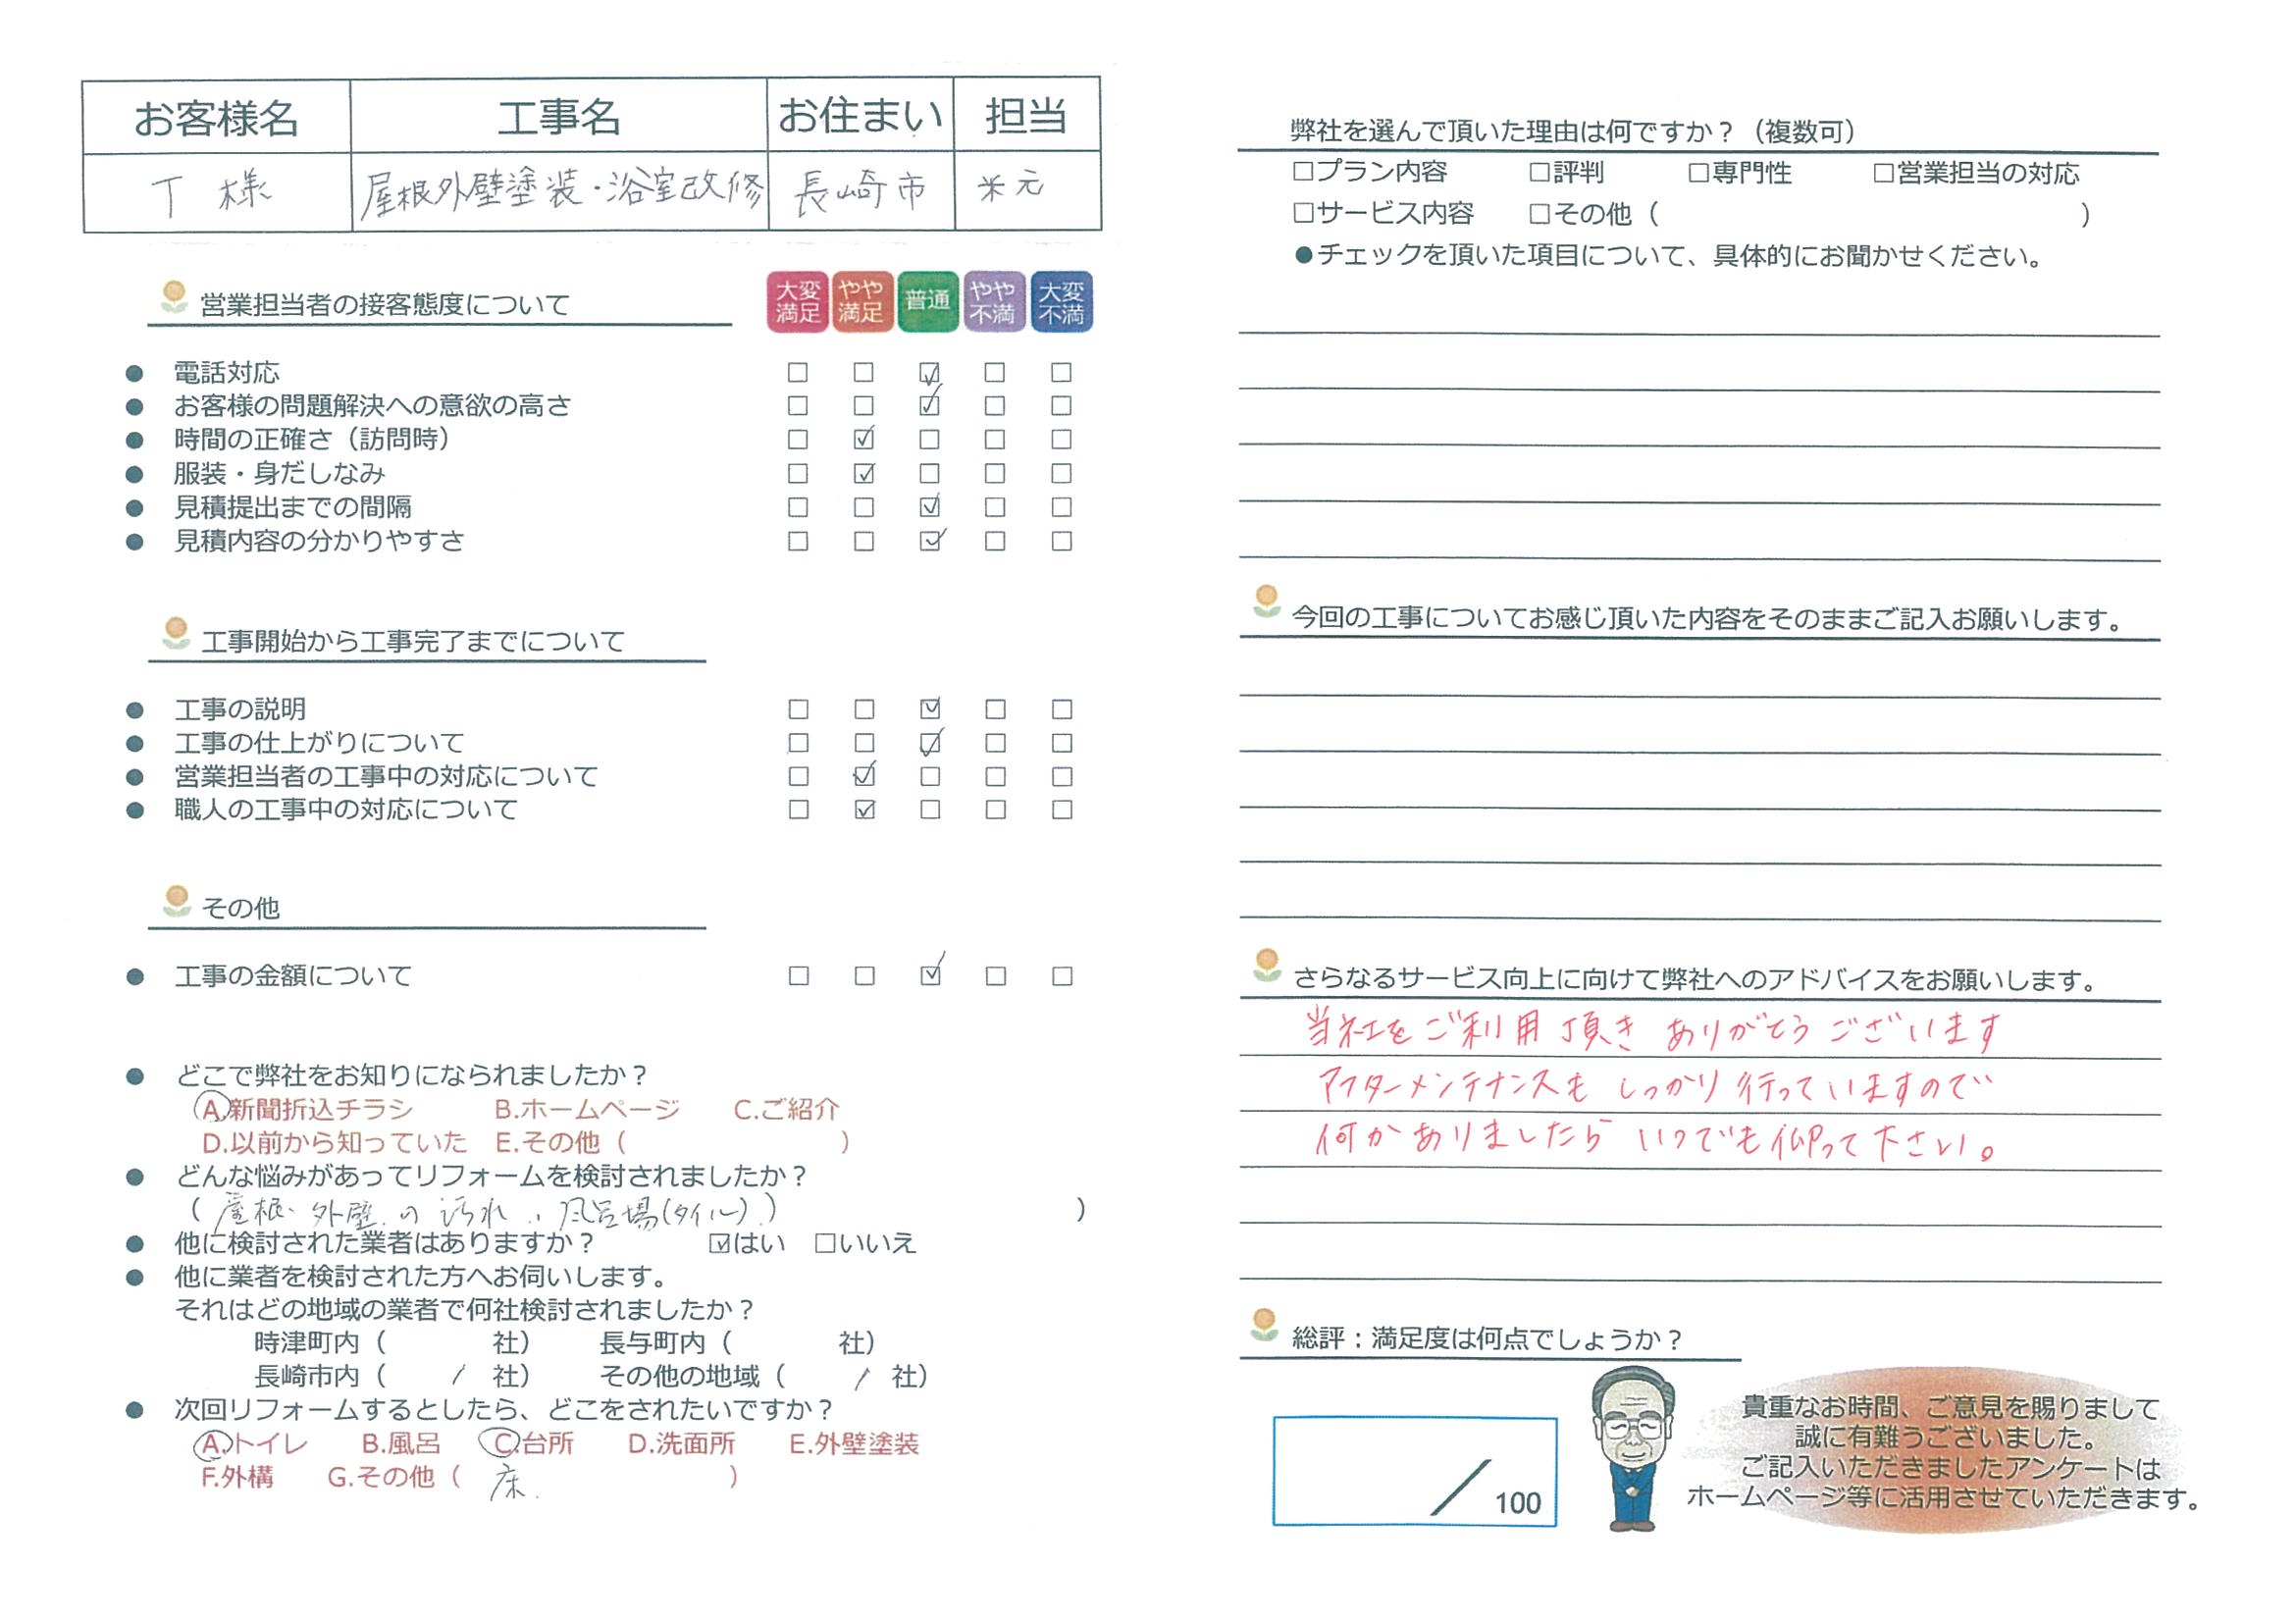 お客様名 工事名 お住まい 担当
T 様 屋根外壁塗装・浴室改修 長崎市 米元
営業担当者の接客態度について
大変満足 やや満足 普通 やや不満 大変不満
● 電話対応 □ □ ☑ □ □
● お客様の問題解決への意欲の高さ □ □ ☑ □ □
● 時間の正確さ（訪問時） □ ☑ □ □ □
● 服装・身だしなみ □ ☑ □ □ □
● 見積提出までの間隔 □ □ ☑ □ □
● 見積内容の分かりやすさ □ □ ☑ □ □
工事開始から工事完了までについて
● 工事の説明 □ □ ☑ □ □
● 工事の仕上がりについて □ □ ☑ □ □
● 営業担当者の工事中の対応について □ ☑ □ □ □
● 職人の工事中の対応について □ ☑ □ □ □
その他
● 工事の金額について □ □ ☑ □ □
● どこで弊社をお知りになられましたか？
A.新聞折込チラシ B.ホームページ C.ご紹介
D.以前から知っていた E.その他（ ）
● どんな悩みがあってリフォームを検討されましたか？
（ 屋根・外壁の汚れ、風呂場(タイル) ）
● 他に検討された業者はありますか？ ☑はい □いいえ
● 他に業者を検討された方へお伺いします。
それはどの地域の業者で何社検討されましたか？
時津町内（ 社） 長与町内（ 社）
長崎市内（ 1 社） その他の地域（ 1 社）
● 次回リフォームするとしたら、どこをされたいですか？
A.トイレ B.風呂 C.台所 D.洗面所 E.外壁塗装
F.外構 G.その他（ 床. ）
弊社を選んで頂いた理由は何ですか？（複数可）
□プラン内容 □評判 □専門性 □営業担当の対応
□サービス内容 □その他（ ）
●チェックを頂いた項目について、具体的にお聞かせください。
今回の工事についてお感じ頂いた内容をそのままご記入お願いします。
さらなるサービス向上に向けて弊社へのアドバイスをお願いします。
当社をご利用頂き ありがとうございます
アフターメンテナンスも しっかり行っていますので
何かありましたら いつでも仰って下さい。
総評：満足度は何点でしょうか？
／100
貴重なお時間、ご意見を賜りまして
誠に有難うございました。
ご記入いただきましたアンケートは
ホームページ等に活用させていただきます。